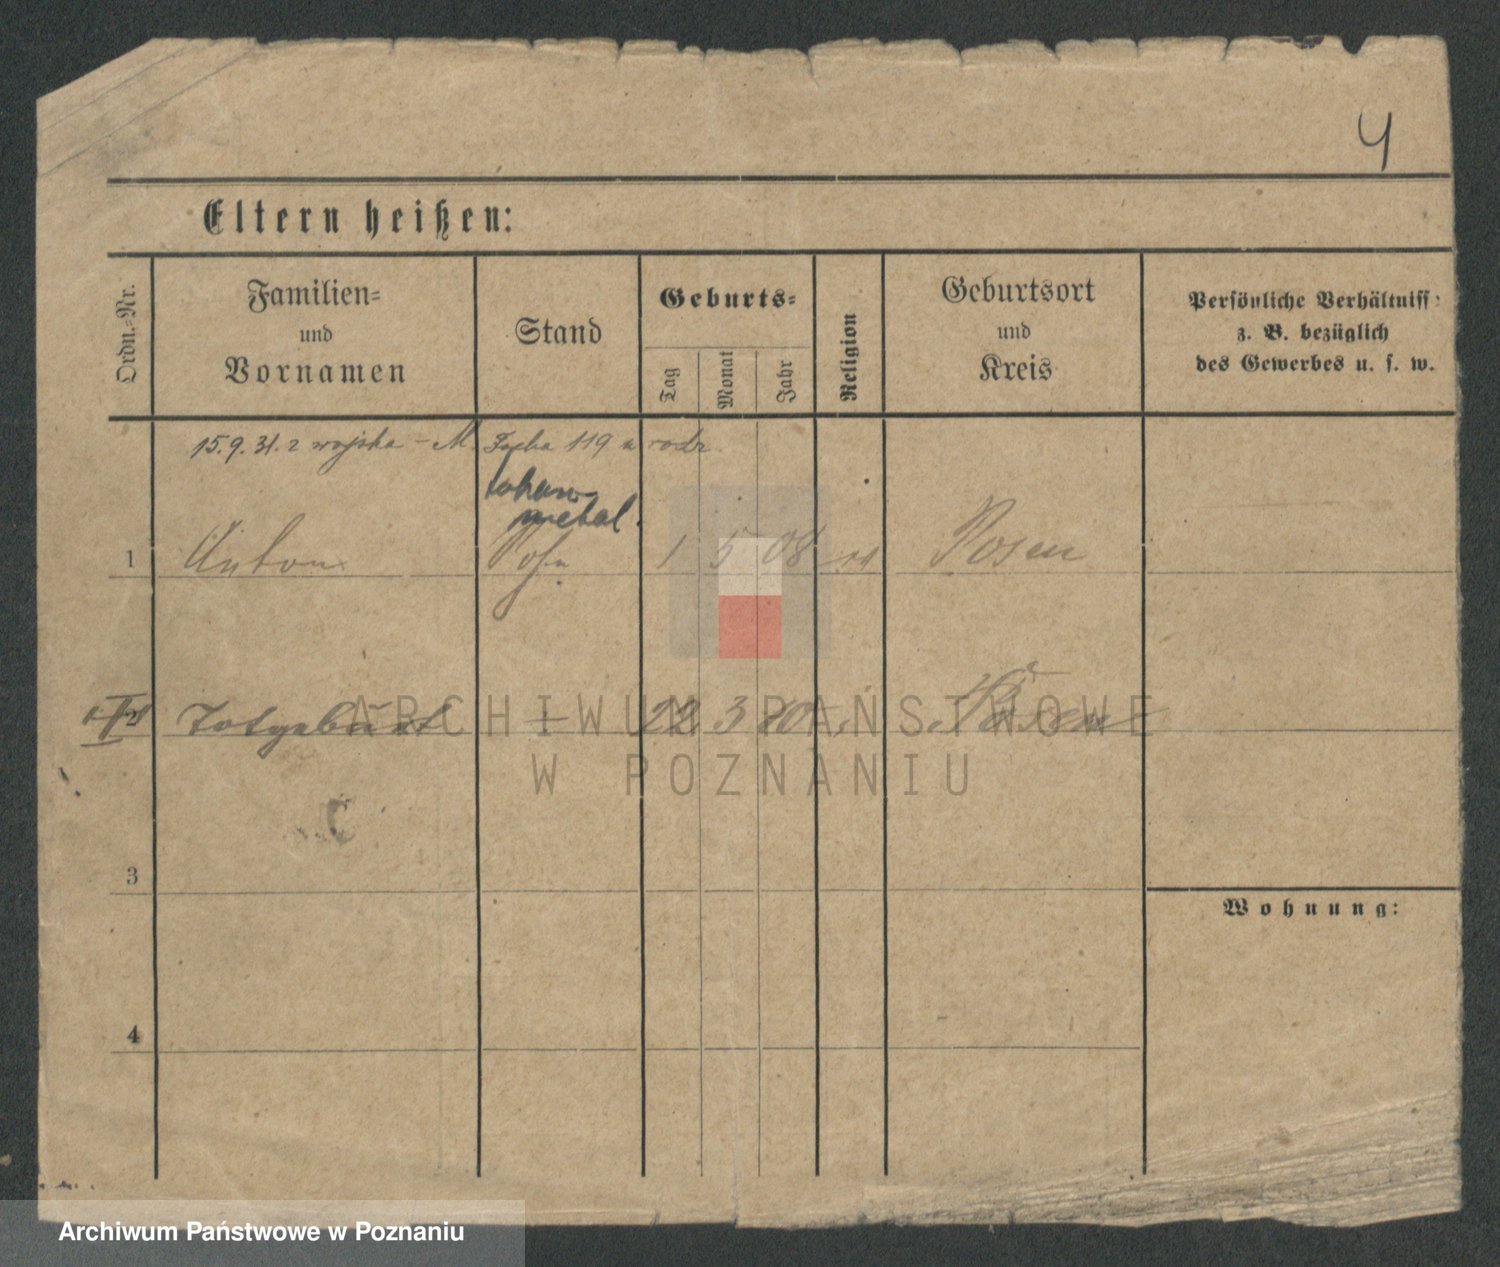 4
Eltern heißen:
Ordn.-Nr.
Familien-
und
Vornamen
Stand
Geburts-
Tag
Monat
Jahr
Religion
Geburtsort
und
Kreis
Persönliche Verhältniss
z. B. bezüglich
des Gewerbes u. s. w.
15.9.31. z wojska - M. 119 u rodz.
tokarz
metal.
1 Anton 1 5 08 Posen
Totgeburt — 22 3 10 Posen
ARCHIWUM PAŃSTWOWE
W POZNANIU
3
Wohnung:
4
Archiwum Państwowe w Poznaniu